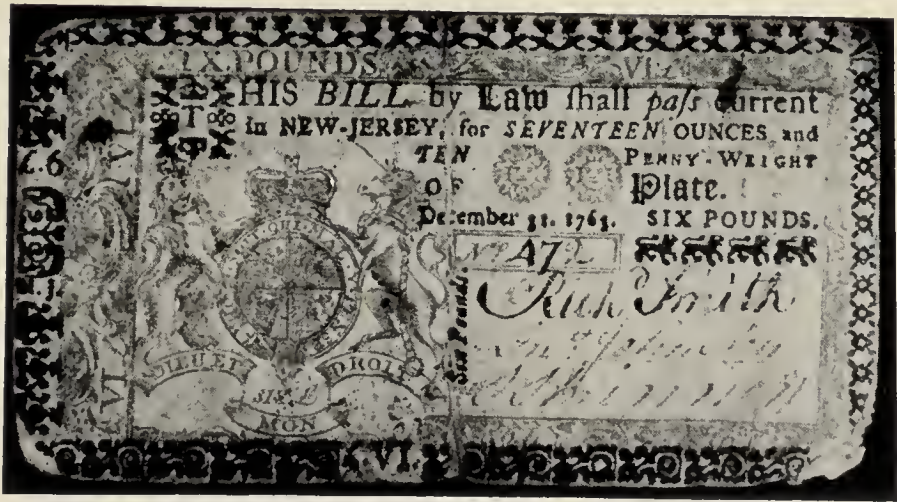 SIX POUNDS. VI.
THIS BILL by Law ſhall paſs current
in NEW-JERSEY, for SEVENTEEN OUNCES and
TEN PENNY-WEIGHT
OF Plate.
December 31. 1763. SIX POUNDS.
£6
VI
No
Rich Smith
Six Pounds.
DIEU ET DROIT
MON
VI
VI